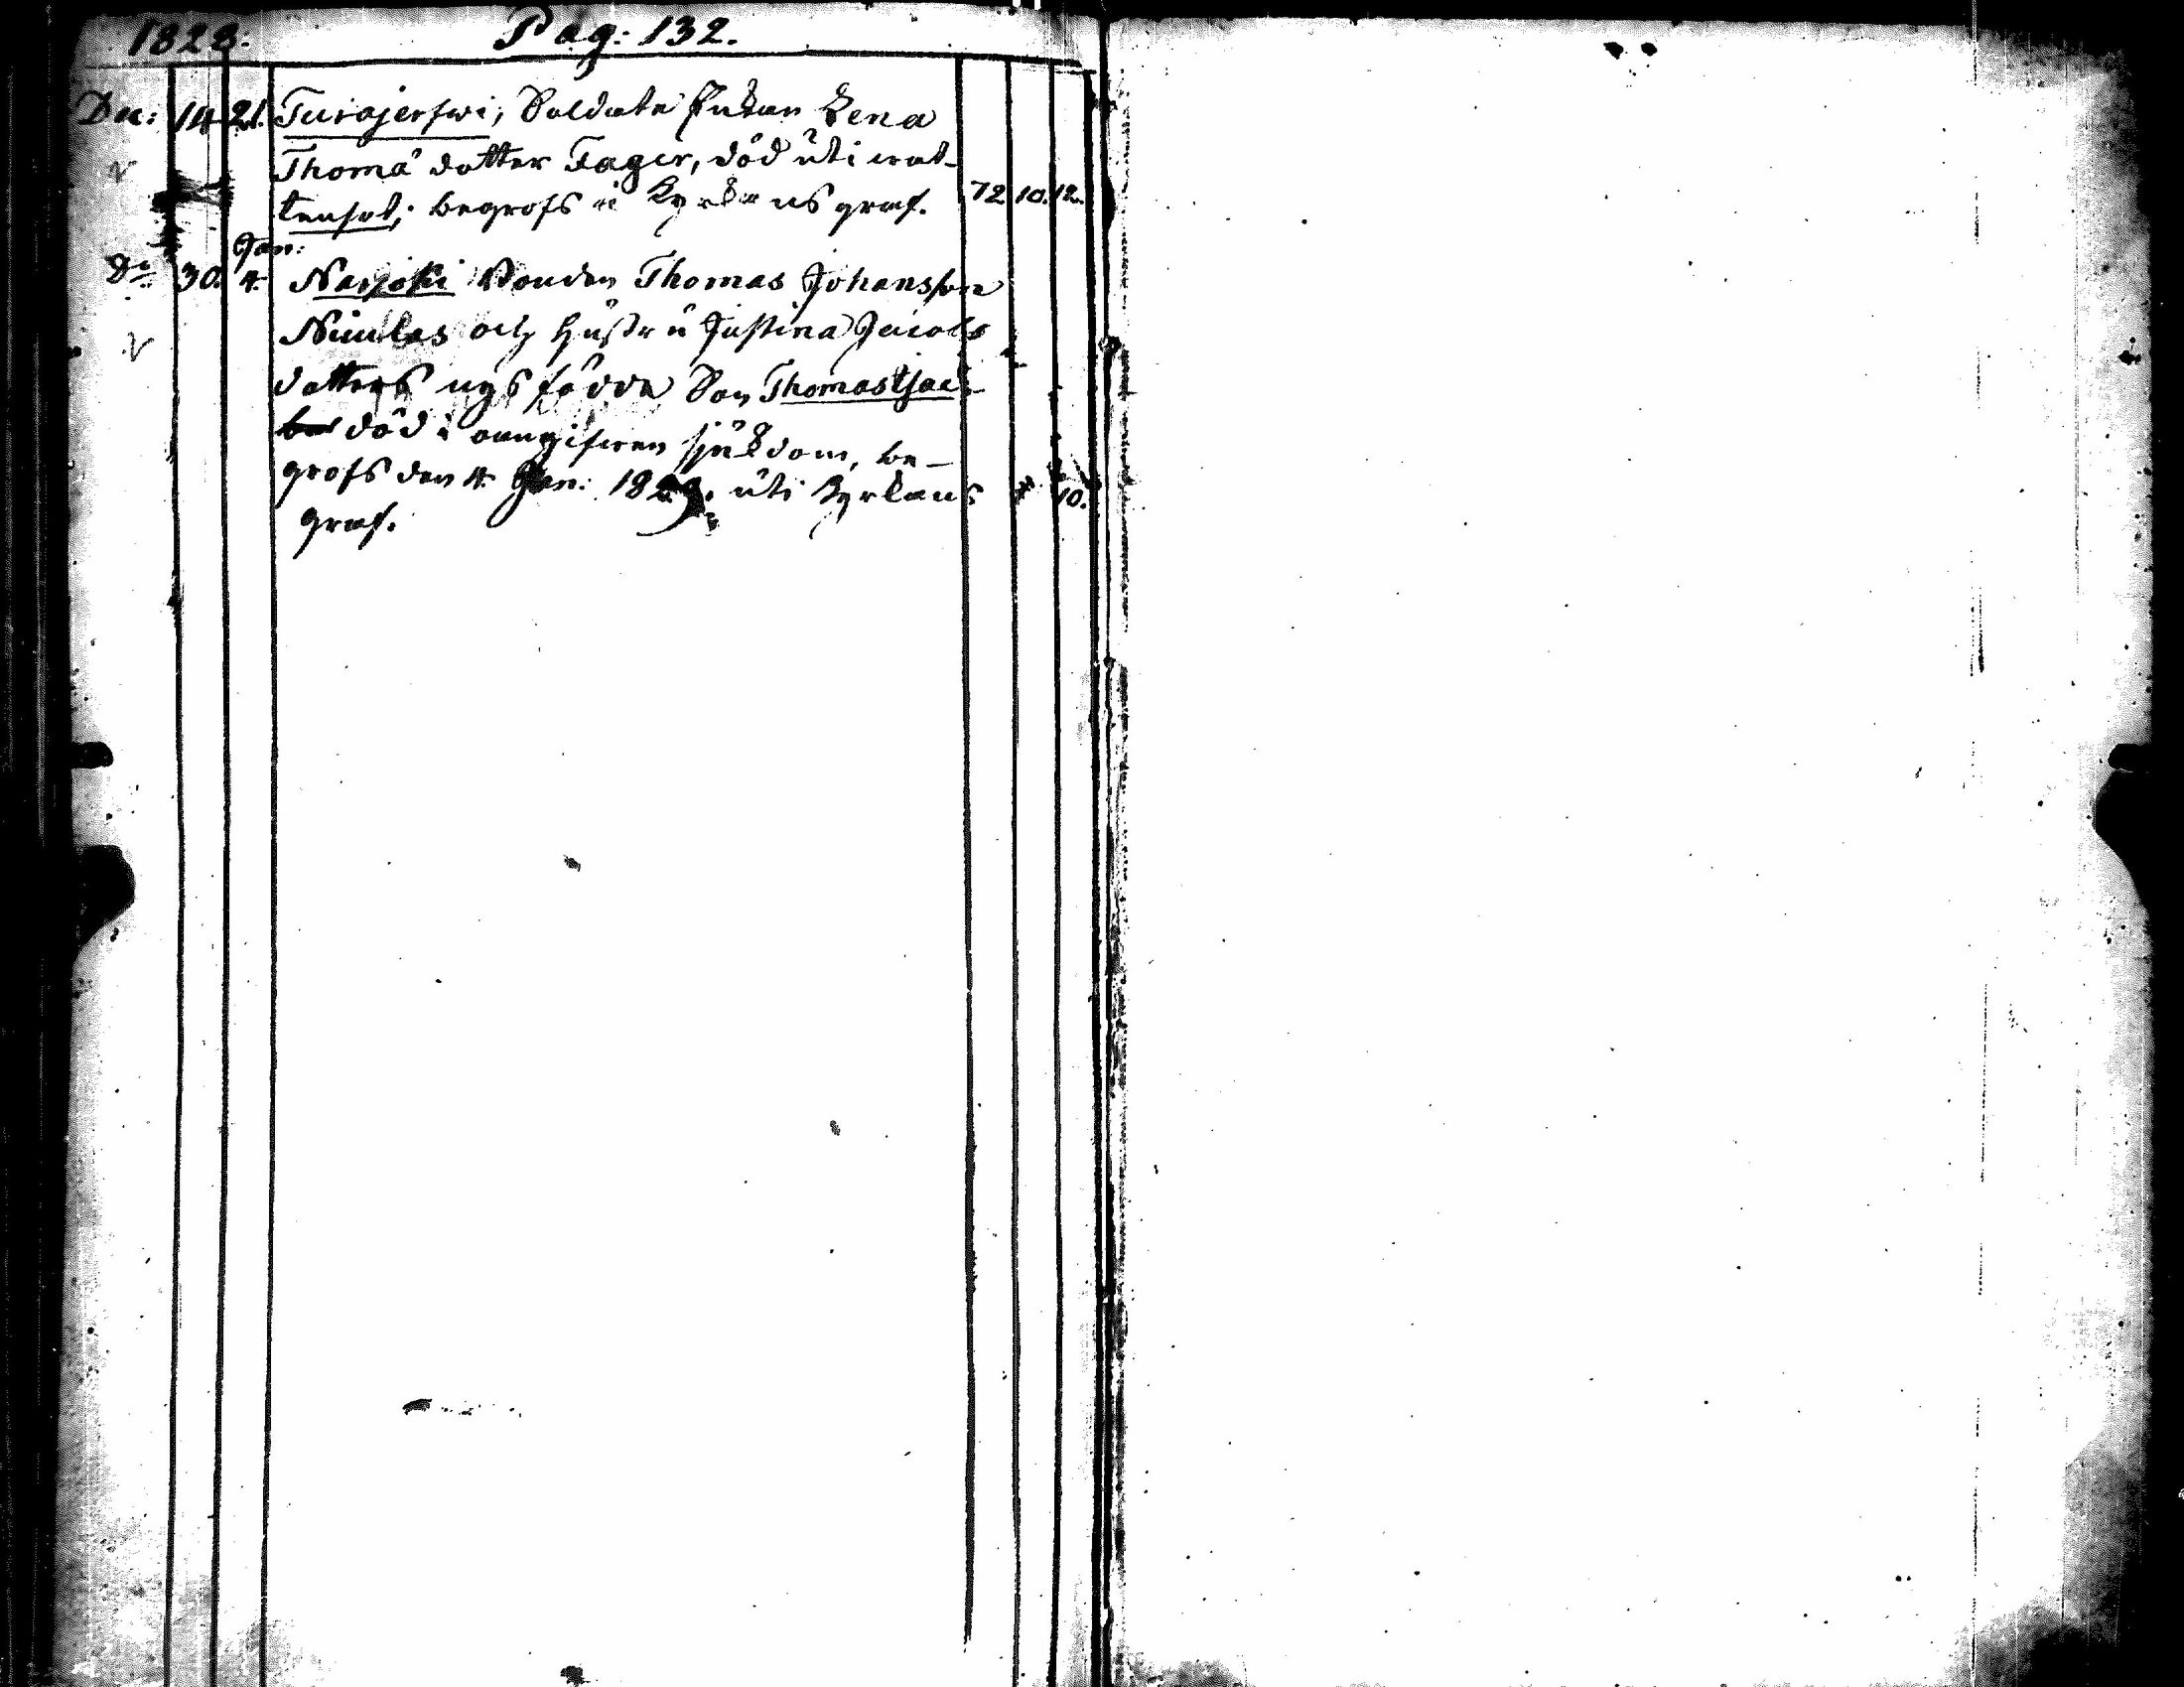 1828. Pag: 132.
Dec: 14 21. Turajerfwi, Soldate Enkan Lena
Thomæ dotter Fager, död uti wat-
tensot; begrofs i Kyrkans graf. 72 10. 12.
Jan:
Do 30. 4. Narjoki Bonden Thomas Johansson
och Hustru Justina Jacobs
dotters nyss födda Son Thomas Jac
död i oangifwen sjukdom, be-
grofs den 4 Jan: 1829. uti Kyrkans 10.
graf.